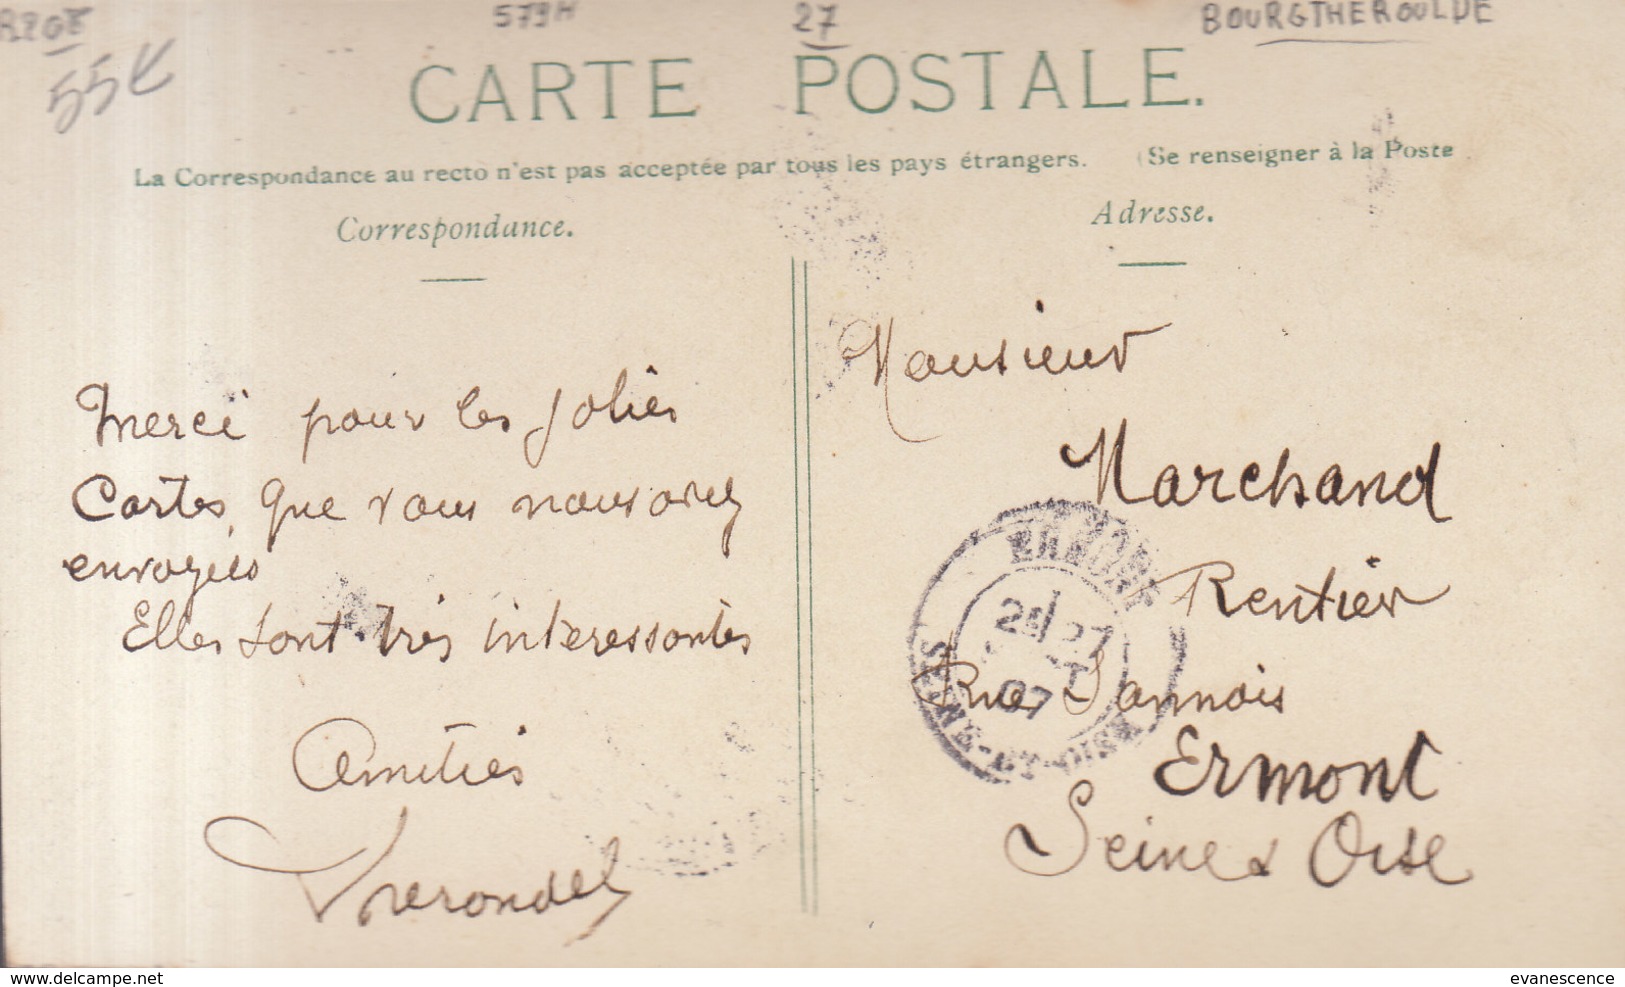 579H
27
BOURGTHEROULDE
55€
CARTE POSTALE.
La Correspondance au recto n'est pas acceptée par tous les pays étrangers. (Se renseigner à la Poste
Correspondance.
Adresse.
Merci pour les jolies
Cartes, que vous nous avez
envoyées
Elles sont très interessantes
Amitiés
Monsieur
Marchand
Rentier
Rue Sannois
Ermont
Seine & Oise
ERMONT
07
SEINE-ET-OISE
www.delcampe.net
evanescence